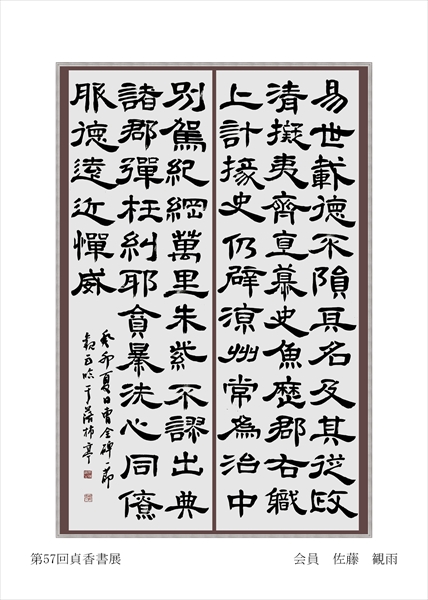 易世載德不隕其名及其從政
清擬夷齊直慕史魚歷郡右職
上計掾史仍辟涼州常為治中
別駕紀綱萬里朱紫不謬出典
諸郡彈枉糾邪貪暴洗心同僚
服德遠近憚威
癸卯夏日曹全碑一節
観雨臨于落柿亭
第57回貞香書展
会員 佐藤 観雨